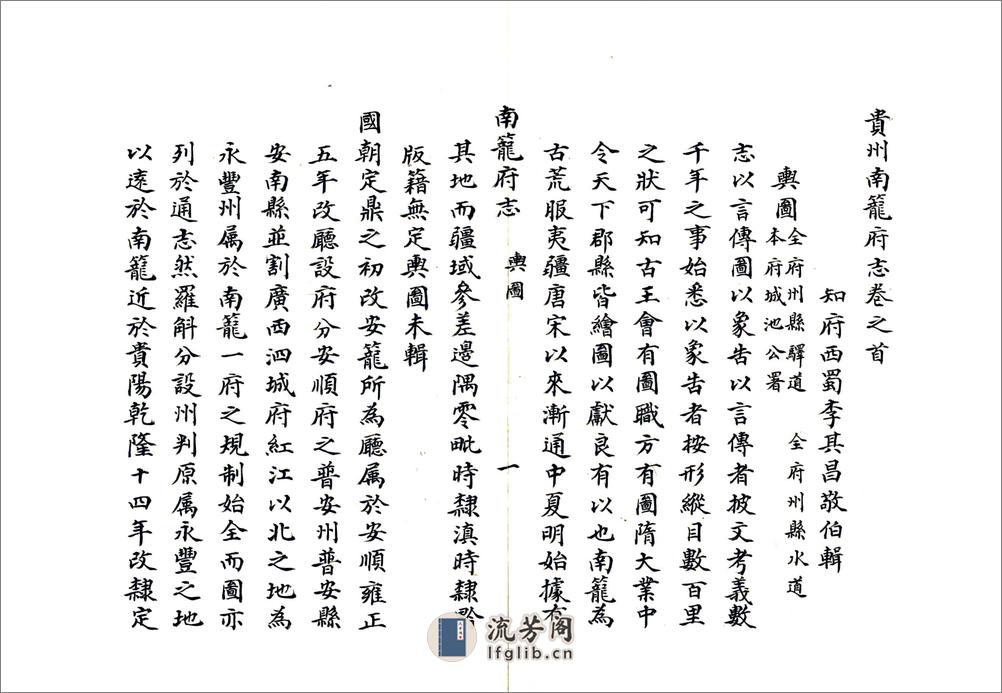 貴州南籠府志卷之首
知府西蜀李其昌敬伯輯
輿圖全府州縣驛道 全府州縣水道
本府城池公署
志以言傳圖以象告以言傳者披文考義數
千年之事始悉以象告者按形縱目數百里
之狀可知古王會有圖職方有圖隋大業中
令天下郡縣皆繪圖以獻良有以也南籠為
古荒服夷疆唐宋以來漸通中夏明始據有
南籠府志 輿圖 一
其地而疆域參差邊隅零毗時隸滇時隸黔
版籍無定輿圖未輯
國朝定鼎之初改安籠所為廳属於安順雍正
五年改廳設府分安順府之普安州普安縣
安南縣並割廣西泗城府紅江以北之地為
永豐州属於南籠一府之規制始全而圖亦
列於通志然羅斛分設州判原属永豐之地
以遠於南籠近於貴陽乾隆十四年改隸定
流芳阁
lfglib.cn